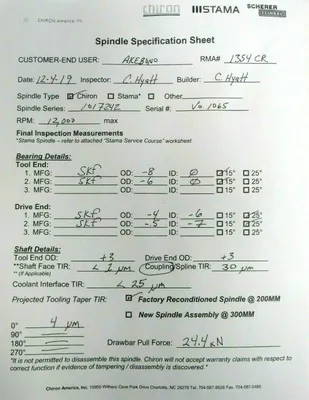 CHIRON America, Inc.
chiron STAMA SCHERER
Spindle Specification Sheet
CUSTOMER-END USER: AKEBONO RMA# 1354 CR
Date: 12-4-19 Inspector: C. Hyatt Builder: C. Hyatt
Spindle Type ☑ Chiron ☐ Stama* ☐ Other
Spindle Series: 1017242 Serial #: Vo.1065
RPM: 12,000 max
Final Inspection Measurements
*Stama Spindle – refer to attached "Stama Spindle Course" worksheet
Bearing Details:
Tool End:
1. MFG: SKF OD: -8 ID: 0 ☑ 15° ☐ 25°
2. MFG: SKF OD: -6 ID: 0 ☑ 15° ☐ 25°
3. MFG: OD: ID: ☐ 15° ☐ 25°
Drive End:
1. MFG: SKF OD: -4 ID: -6 ☐ 15° ☑ 25°
2. MFG: SKF OD: -5 ID: -7 ☐ 15° ☑ 25°
3. MFG: OD: ID: ☐ 15° ☐ 25°
Shaft Details:
Tool End OD: +3 Drive End OD: +3
**Shaft Face TIR: < 1 µm Coupling/Spline TIR: 30 µm
** (If Applicable)
Coolant Interface TIR: < 25 µm
Projected Tooling Taper TIR: ☑ Factory Reconditioned Spindle @ 200MM
☐ New Spindle Assembly @ 300MM
0° 4 µm
90°
180° Drawbar Pull Force: 24.4 kN
270°
*It is not permitted to disassemble this spindle. Chiron will not accept warranty claims with respect to
correct function if evidence of tampering / disassembly is discovered.*
Chiron America, Inc. 10950 Withers Cove Park Drive Charlotte, NC 28278 Tel. 704-587-9526 Fax. 704-587-0485